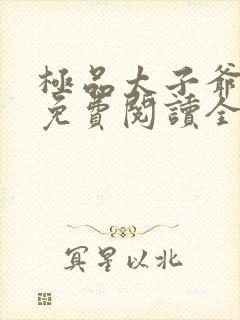 極品太子爺
免費閱讀全
冥星以北